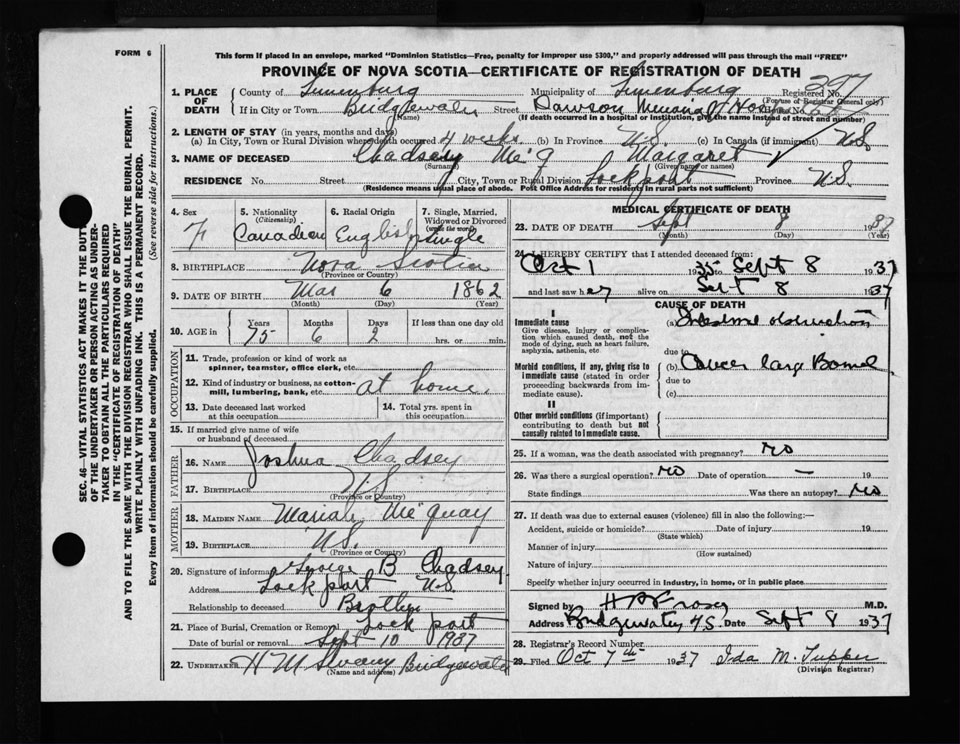 FORM 6
This form if placed in an envelope, marked "Dominion Statistics—Free, penalty for improper use $300," and properly addressed will pass through the mail "FREE"
PROVINCE OF NOVA SCOTIA—CERTIFICATE OF REGISTRATION OF DEATH
SEC. 46—VITAL STATISTICS ACT MAKES IT THE DUTY
OF THE UNDERTAKER OR PERSON ACTING AS UNDER-
TAKER TO OBTAIN ALL THE PARTICULARS REQUIRED
IN THE "CERTIFICATE OF REGISTRATION OF DEATH"
AND TO FILE THE SAME WITH THE DIVISION REGISTRAR WHO SHALL ISSUE THE BURIAL PERMIT.
WRITE PLAINLY WITH UNFADING INK. THIS IS A PERMANENT RECORD.
Every item of information should be carefully supplied. (See reverse side for instructions.)
1. PLACE OF DEATH
County of Lunenburg Municipality of Lunenburg Registered No. 297
(For use of Registrar General only)
If in City or Town Bridgewater Street Dawson Memorial Hospital
(Name) (If death occurred in a hospital or institution, give the name instead of street and number)
2. LENGTH OF STAY (in years, months and days)
(a) In City, Town or Rural Division where death occurred 4 weeks (b) In Province N.S. (c) In Canada (if immigrant) N.S.
3. NAME OF DECEASED Chadsey Mc Q Margaret
(Surname) (Given name or names)
RESIDENCE No. Street City, Town or Rural Division Lockport Province N.S.
(Residence means usual place of abode. Post Office Address for residents in rural parts not sufficient)
4. Sex F
5. Nationality (Citizenship) Canadian
6. Racial Origin English
7. Single, Married, Widowed or Divorced (write the word) Single
8. BIRTHPLACE Nova Scotia
(Province or Country)
9. DATE OF BIRTH Mar 6 1862
(Month) (Day) (Year)
10. AGE in Years 75 Months 6 Days 2 If less than one day old hrs. or min.
OCCUPATION
11. Trade, profession or kind of work as spinner, teamster, office clerk, etc.
12. Kind of industry or business, as cotton-mill, lumbering, bank, etc. at home.
13. Date deceased last worked at this occupation
14. Total yrs. spent in this occupation
15. If married give name of wife or husband of deceased
FATHER
16. Name Joshua Chadsey
17. Birthplace N.S.
(Province or Country)
MOTHER
18. Maiden Name Mariah McQuay
19. Birthplace N.S.
(Province or Country)
20. Signature of informant George B Chadsey
Address Lockport N.S.
Relationship to deceased Brother
21. Place of Burial, Cremation or Removal Lockport
Date of burial or removal Sept 10 1937
22. UNDERTAKER H M Bridgewater
(Name and address)
MEDICAL CERTIFICATE OF DEATH
23. DATE OF DEATH Sept 8 1937
(Month) (Day) (Year)
24. I HEREBY CERTIFY that I attended deceased from:
Oct 1 1935 Sept 8 1937
and last saw her alive on Sept 8 1937
CAUSE OF DEATH
I
Immediate cause (a) Intestinal obstruction
Give disease, injury or complication which caused death, not the mode of dying, such as heart failure, asphyxia, asthenia, etc.
due to
Morbid conditions, if any, giving rise to immediate cause (stated in order proceeding backwards from immediate cause). (b) Cancer large Bowel
due to
(c)
II
Other morbid conditions (if important) contributing to death but not causally related to immediate cause.
25. If a woman, was the death associated with pregnancy? no
26. Was there a surgical operation? no Date of operation — 19
State findings Was there an autopsy? no
27. If death was due to external causes (violence) fill in also the following:—
Accident, suicide or homicide? Date of injury 19
(State which)
Manner of injury
(How sustained)
Nature of injury
Specify whether injury occurred in industry, in home, or in public place
Signed by M.D.
Address Bridgewater N.S. Date Sept 8 1937
28. Registrar's Record Number
29. Filed Oct 7th 1937 Ida M. Tupper
(Division Registrar)